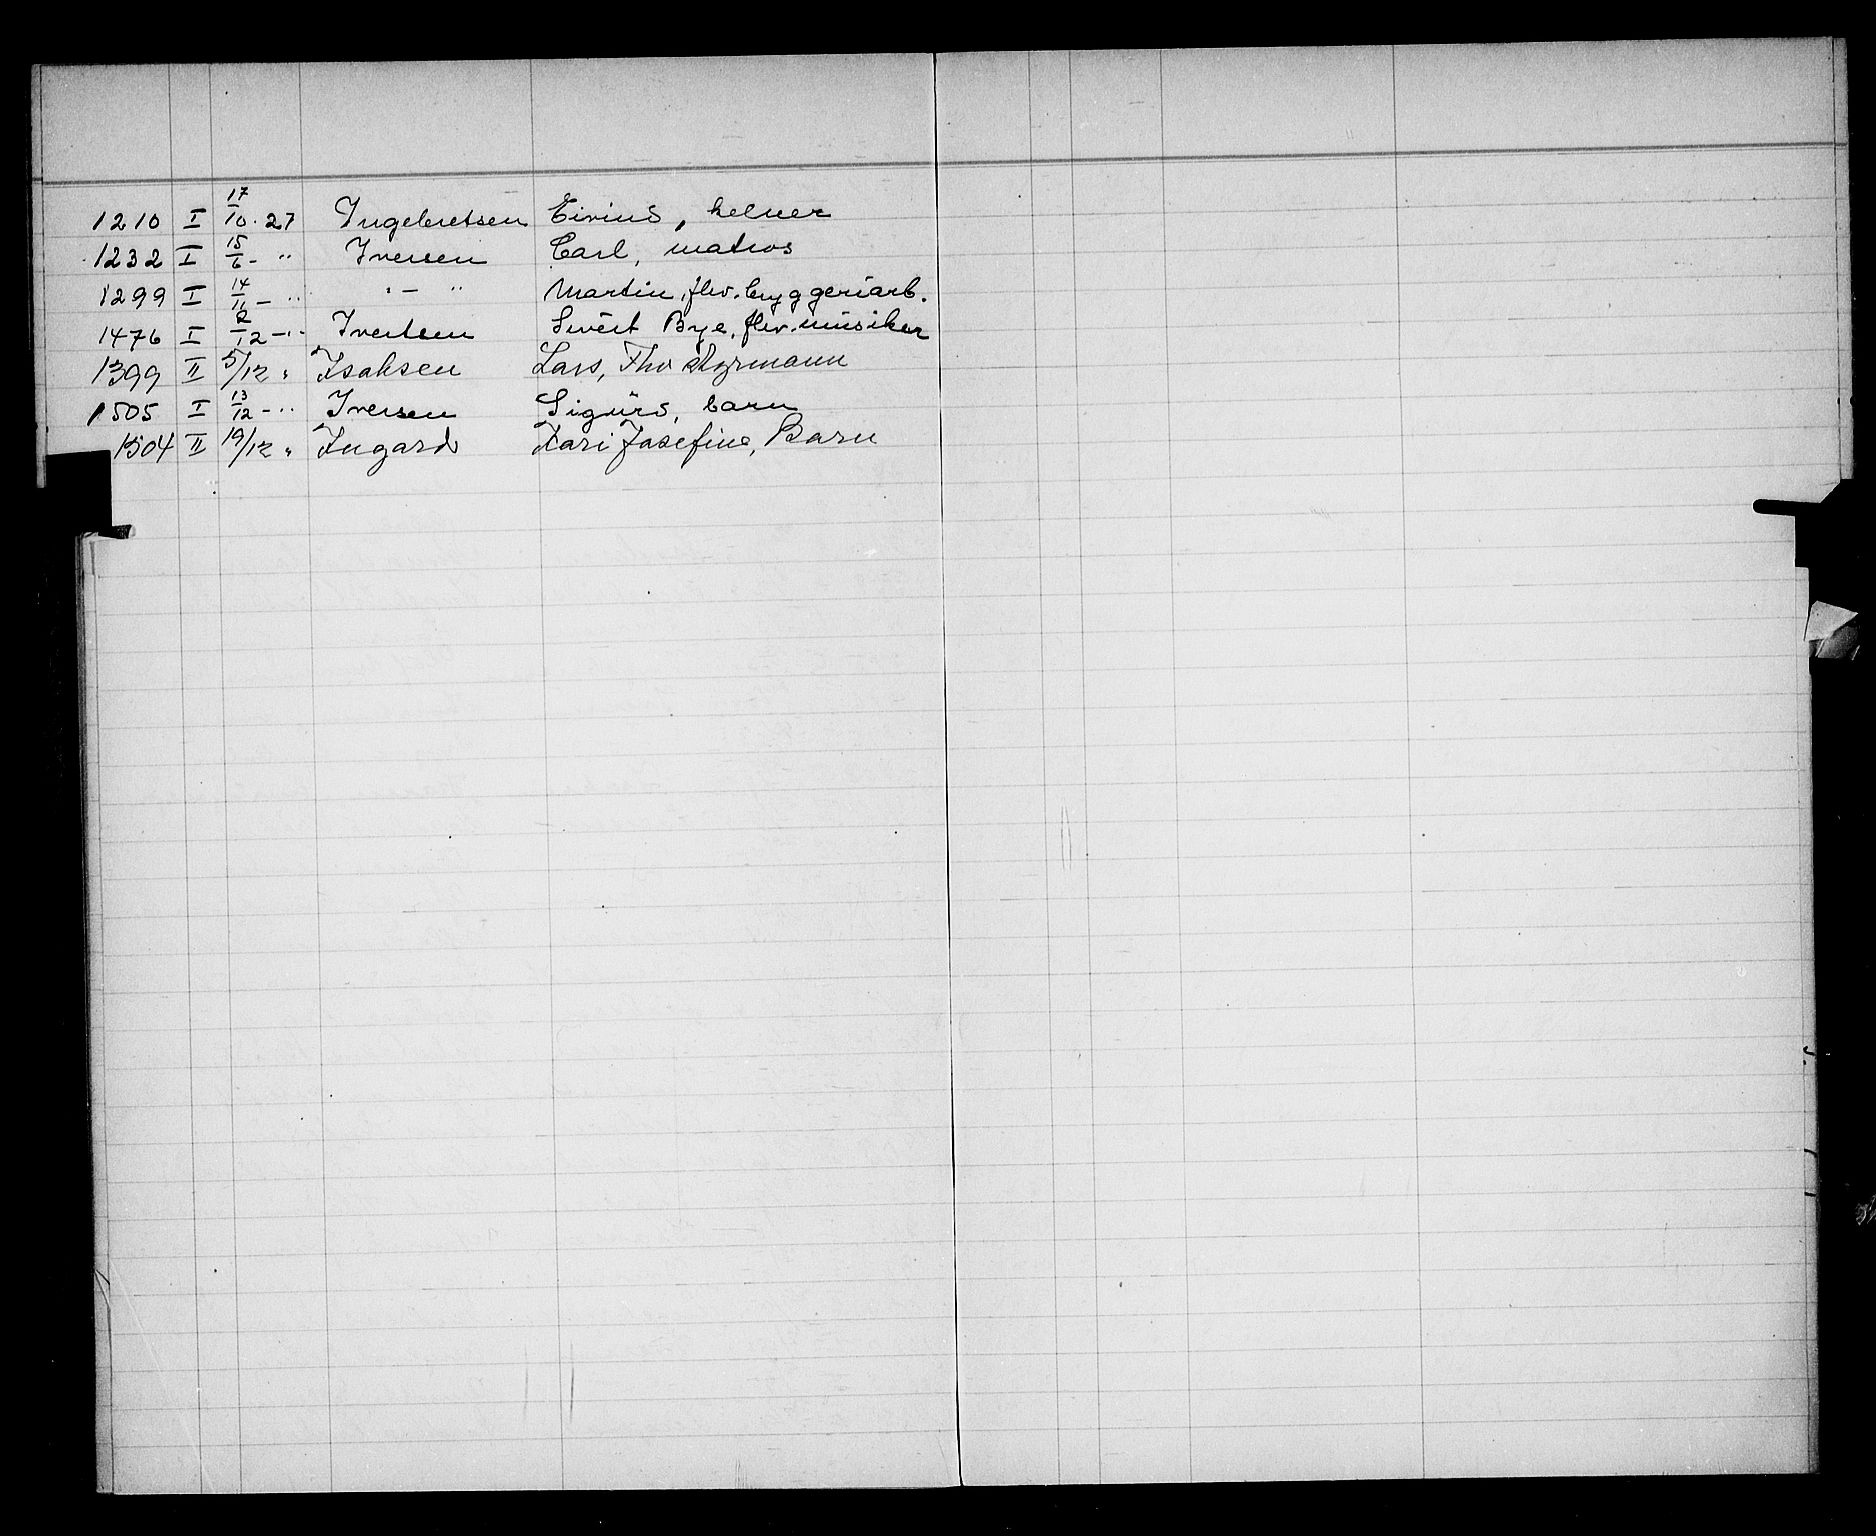 1210 I 17/10-27 Ingebretsen Eivind, kelner
1232 I 15/6 - " Iversen Carl, matros
1299 I 14/11 - " " - " Martin, fhv. bryggeriarb.
1476 I 2/12 - " Ivertsen Sivert Bye, fhv. musiker
1399 II 5/12 " Isaksen Lars, Fhv Styrmann
1505 I 13/12 - " Iversen Sigurd, barn
1504 II 19/12 " Ingard Kari Josefine, Barn